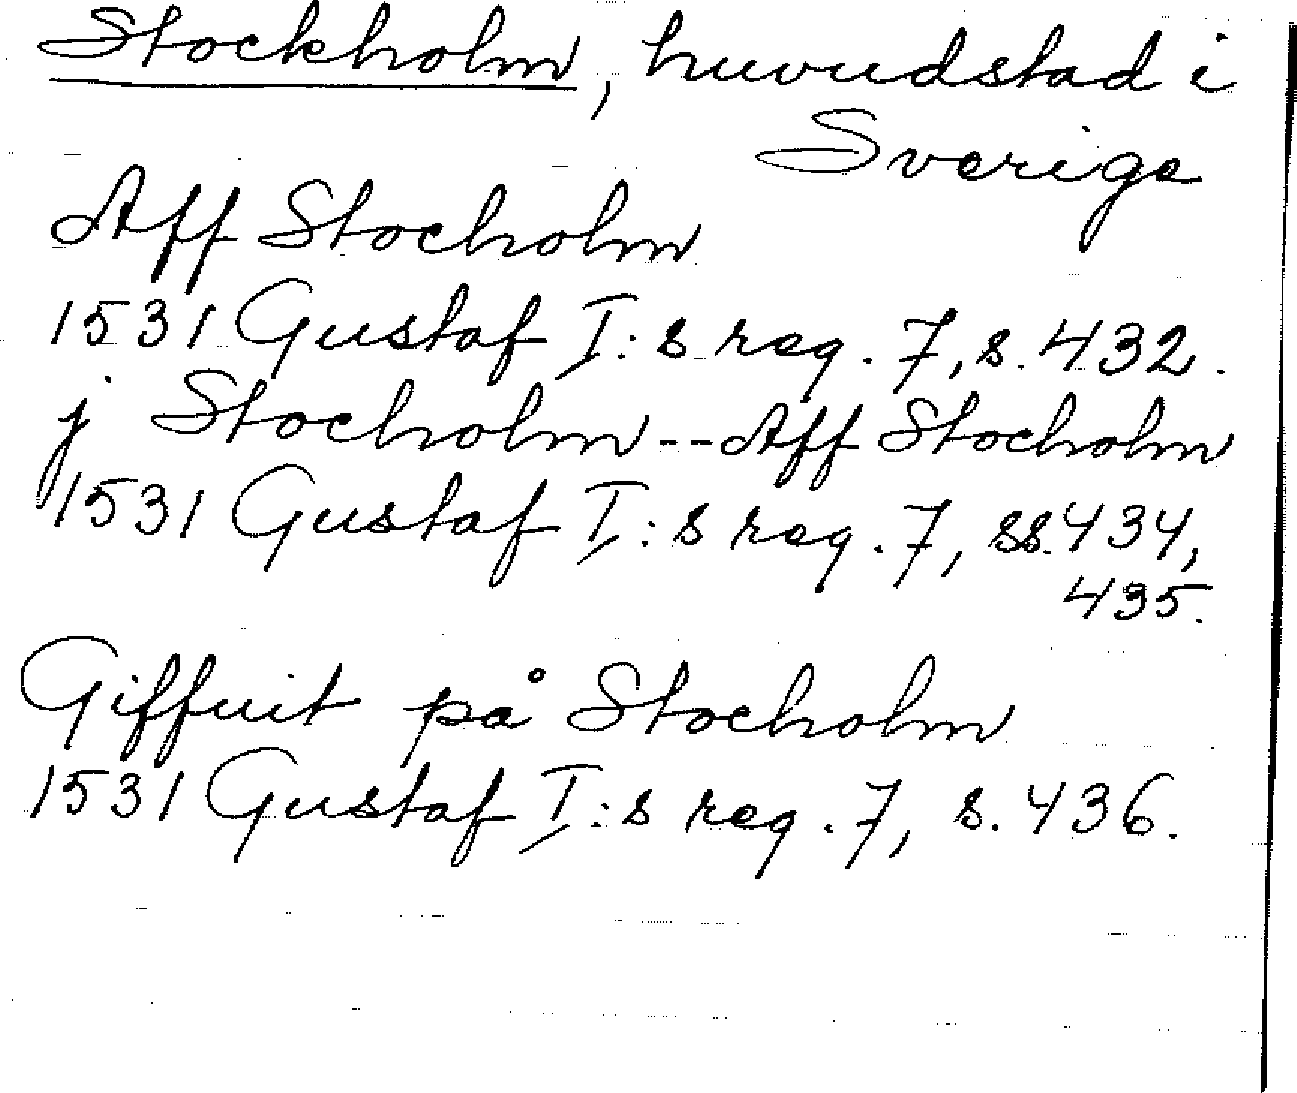 Stockholm, huvudstad i
Sverige
Aff Stocholm
1531 Gustaf I:s reg. 7, s. 432.
j Stocholm -- Aff Stocholm
1531 Gustaf I:s reg. 7, ss. 434,
435.
Giffuit på Stocholm
1531 Gustaf I:s reg. 7, s. 436.